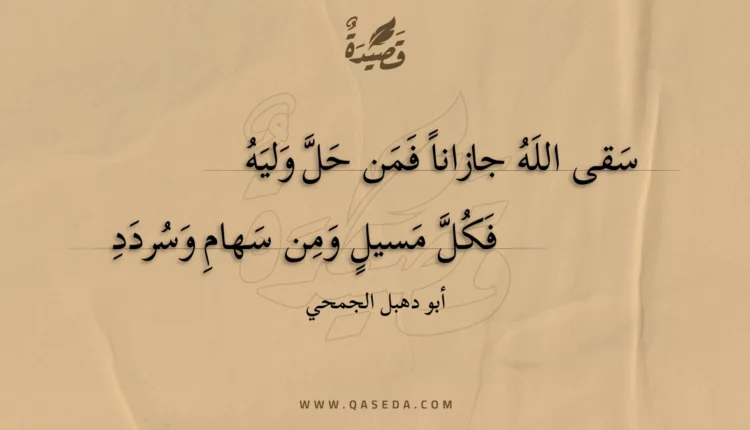 قَصِيدَةٌ
سَقى اللَهُ جازاناً فَمَن حَلَّ وَليَهُ
فَكُلَّ مَسيلٍ وَمِن سَهامِ وَسُردَدِ
أبو دهبل الجمحي
WWW.QASEDA.COM